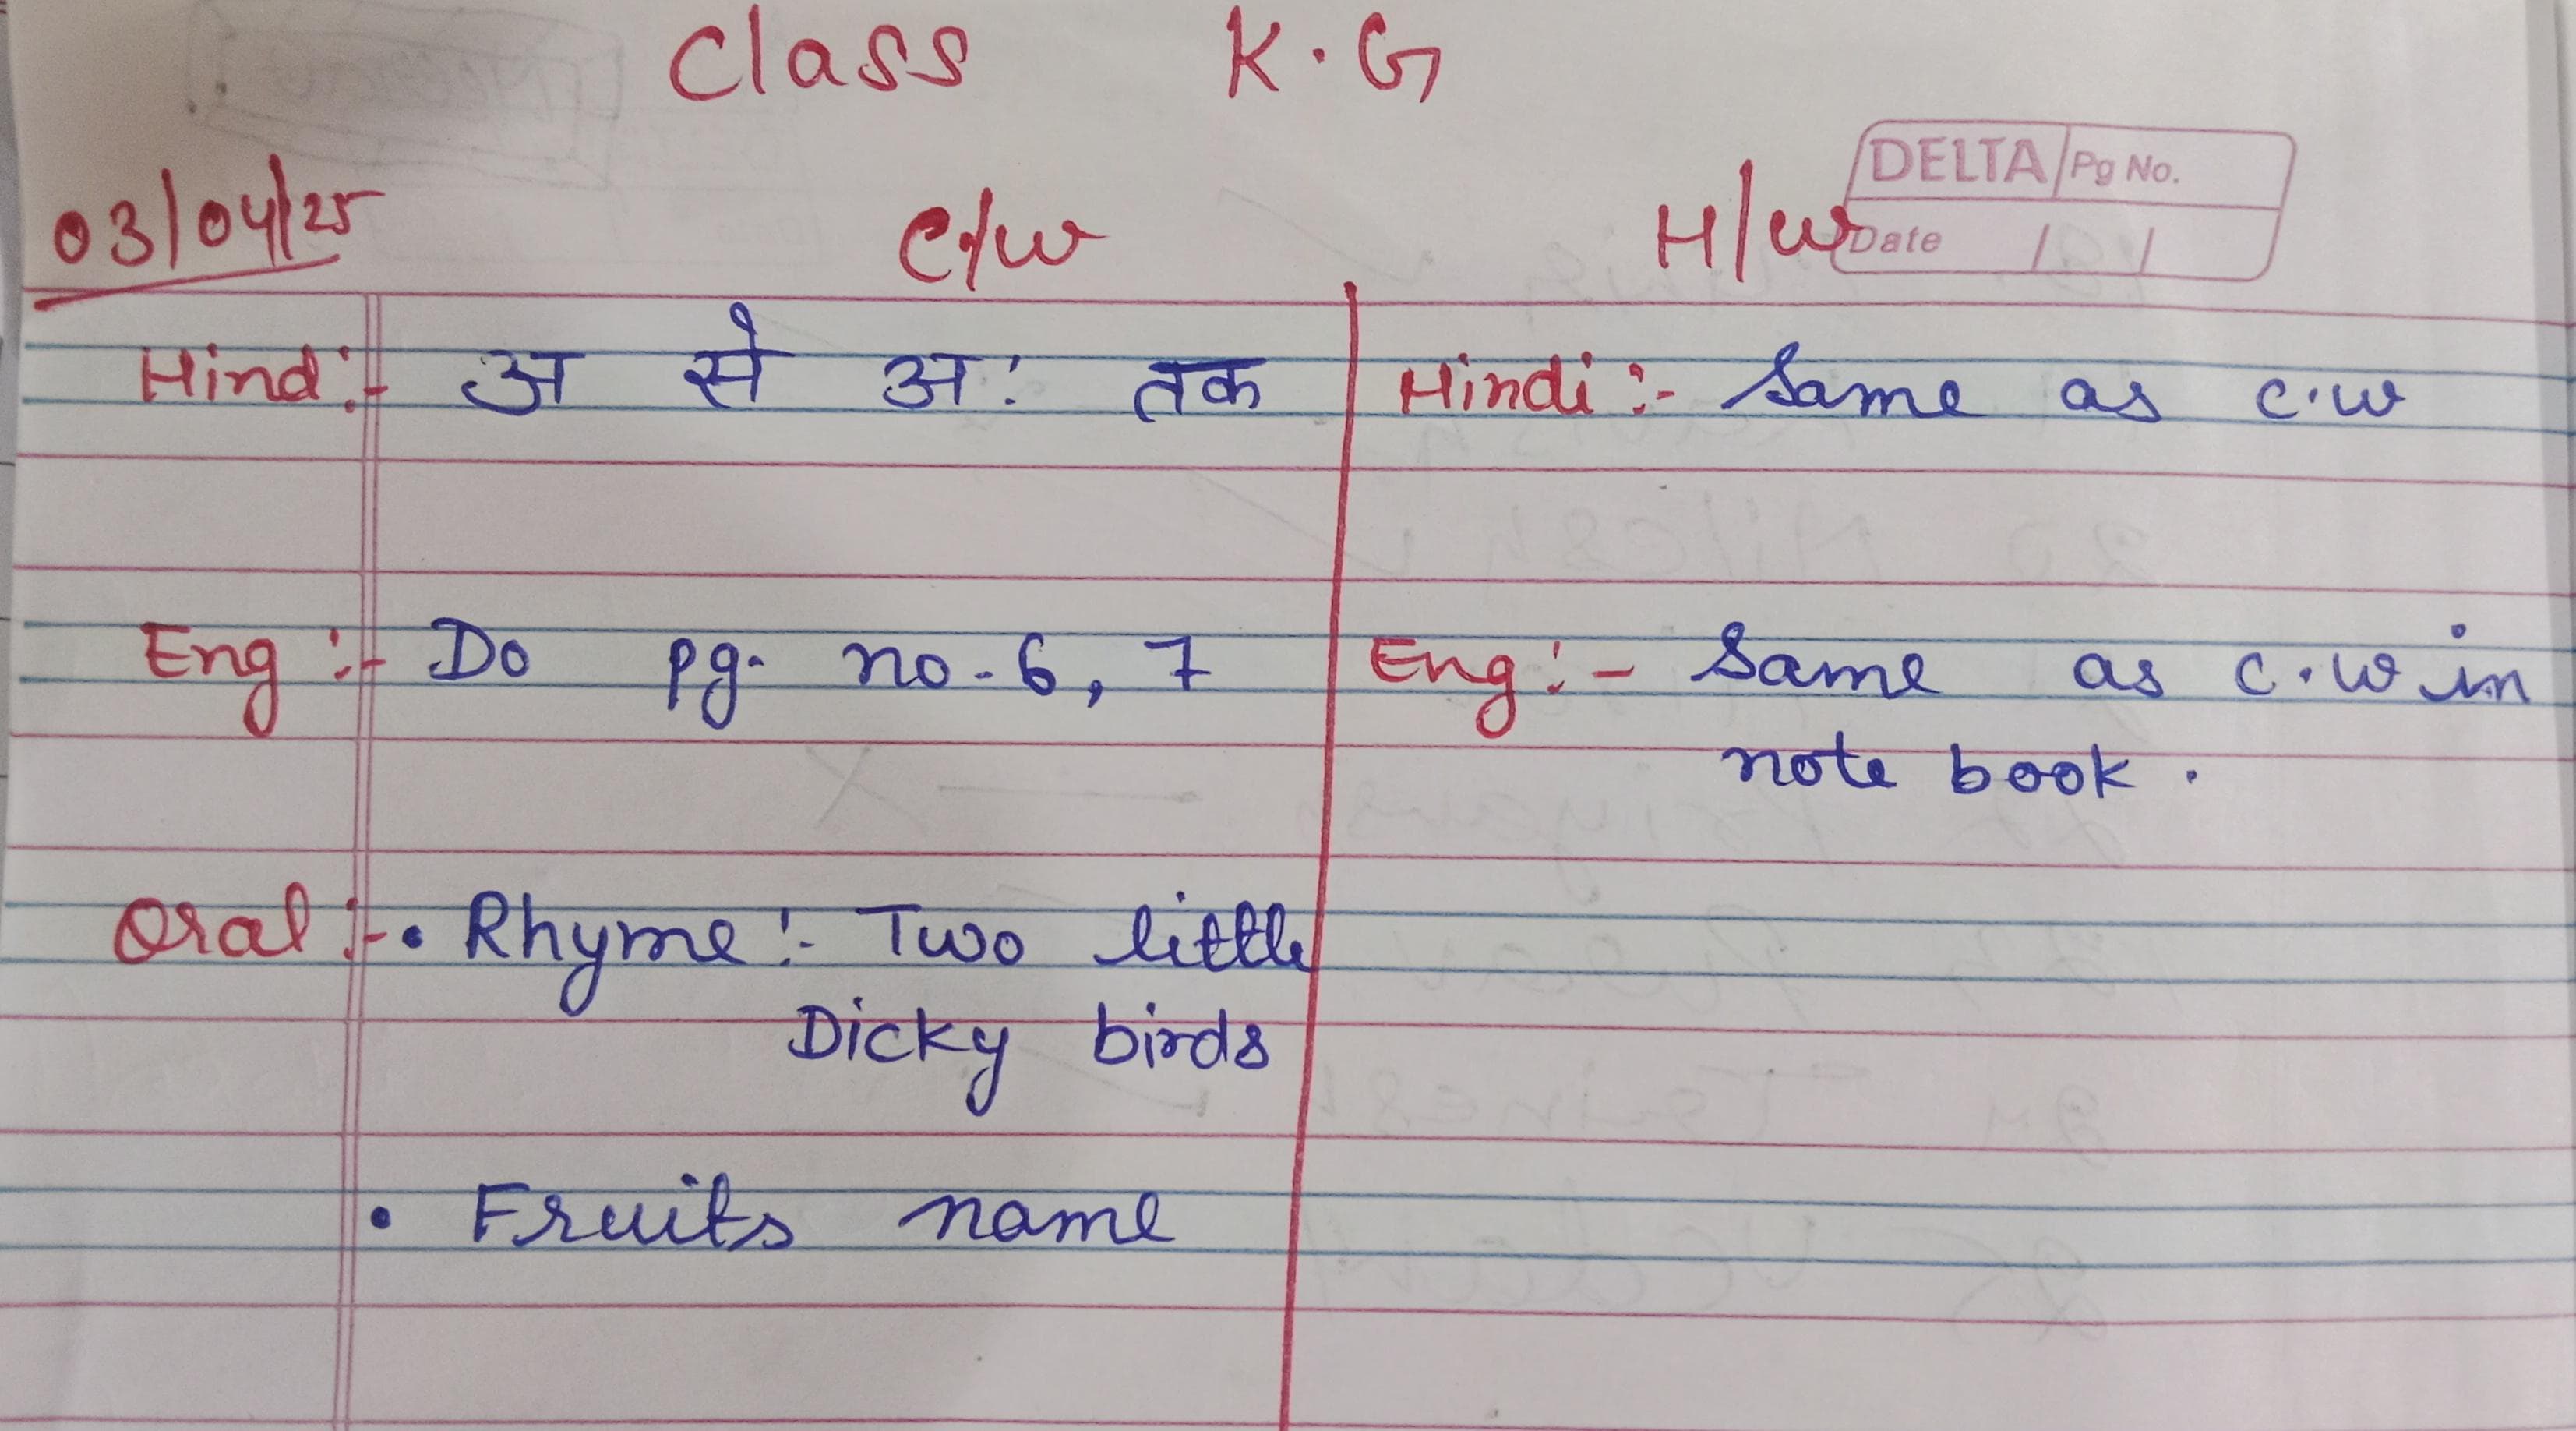 Class K.G
DELTA Pg No.
Date / /
03/04/25 C/W H/W
Hindi:- अ से अः तक Hindi:- Same as c.w
Eng:- Do pg. no. 6, 7 Eng:- Same as c.w in
note book.
Oral:- • Rhyme:- Two little
Dicky birds
• Fruits name